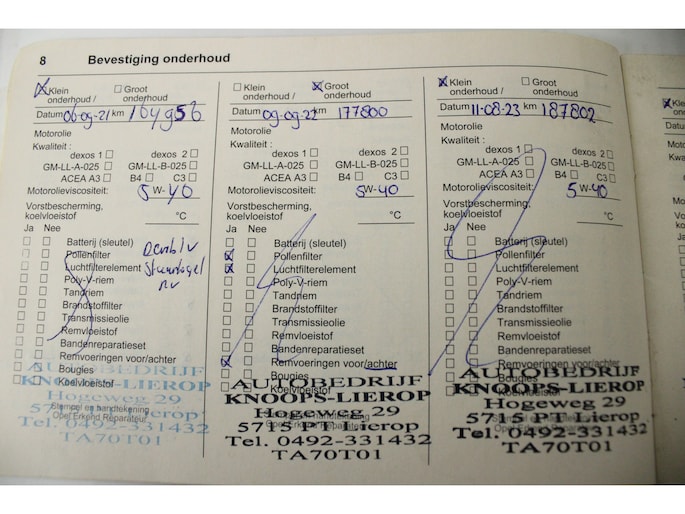 8 Bevestiging onderhoud
Klein onderhoud / Groot onderhoud
Datum 06-09-21 km
Motorolie
Kwaliteit:
dexos 1 dexos 2
GM-LL-A-025 GM-LL-B-025
ACEA A3 B4 C3
Motorolieviscositeit: 5 W- 40
Vorstbescherming, koelvloeistof °C
Ja Nee
Batterij (sleutel)
Pollenfilter
Luchtfilterelement
Poly-V-riem
Tandriem
Brandstoffilter
Transmissieolie
Remvloeistof
Bandenreparatieset
Remvoeringen voor/achter
Bougies
Koelvloeistof
AUTOBEDRIJF
KNOOPS-LIEROP
Hogeweg 29
5715 PT Lierop
Tel. 0492-331432
TA70T01
Stempel en handtekening
Opel Erkend Reparateur
Klein onderhoud / Groot onderhoud
Datum 09-09-22 km 177800
Motorolie
Kwaliteit:
dexos 1 dexos 2
GM-LL-A-025 GM-LL-B-025
ACEA A3 B4 C3
Motorolieviscositeit: 5 W-40
Vorstbescherming, koelvloeistof °C
Ja Nee
Batterij (sleutel)
Pollenfilter
Luchtfilterelement
Poly-V-riem
Tandriem
Brandstoffilter
Transmissieolie
Remvloeistof
Bandenreparatieset
Remvoeringen voor/achter
Bougies
Koelvloeistof
AUTOBEDRIJF
KNOOPS-LIEROP
Hogeweg 29
5715 PT Lierop
Tel. 0492-331432
TA70T01
Klein onderhoud / Groot onderhoud
Datum 11-08-23 km 187802
Motorolie
Kwaliteit:
dexos 1 dexos 2
GM-LL-A-025 GM-LL-B-025
ACEA A3 B4 C3
Motorolieviscositeit: 5 W-40
Vorstbescherming, koelvloeistof °C
Ja Nee
Batterij (sleutel)
Pollenfilter
Luchtfilterelement
Poly-V-riem
Tandriem
Brandstoffilter
Transmissieolie
Remvloeistof
Bandenreparatieset
Remvoeringen voor/achter
Bougies
Koelvloeistof
AUTOBEDRIJF
KNOOPS-LIEROP
Hogeweg 29
5715 PT Lierop
Tel. 0492-331432
TA70T01